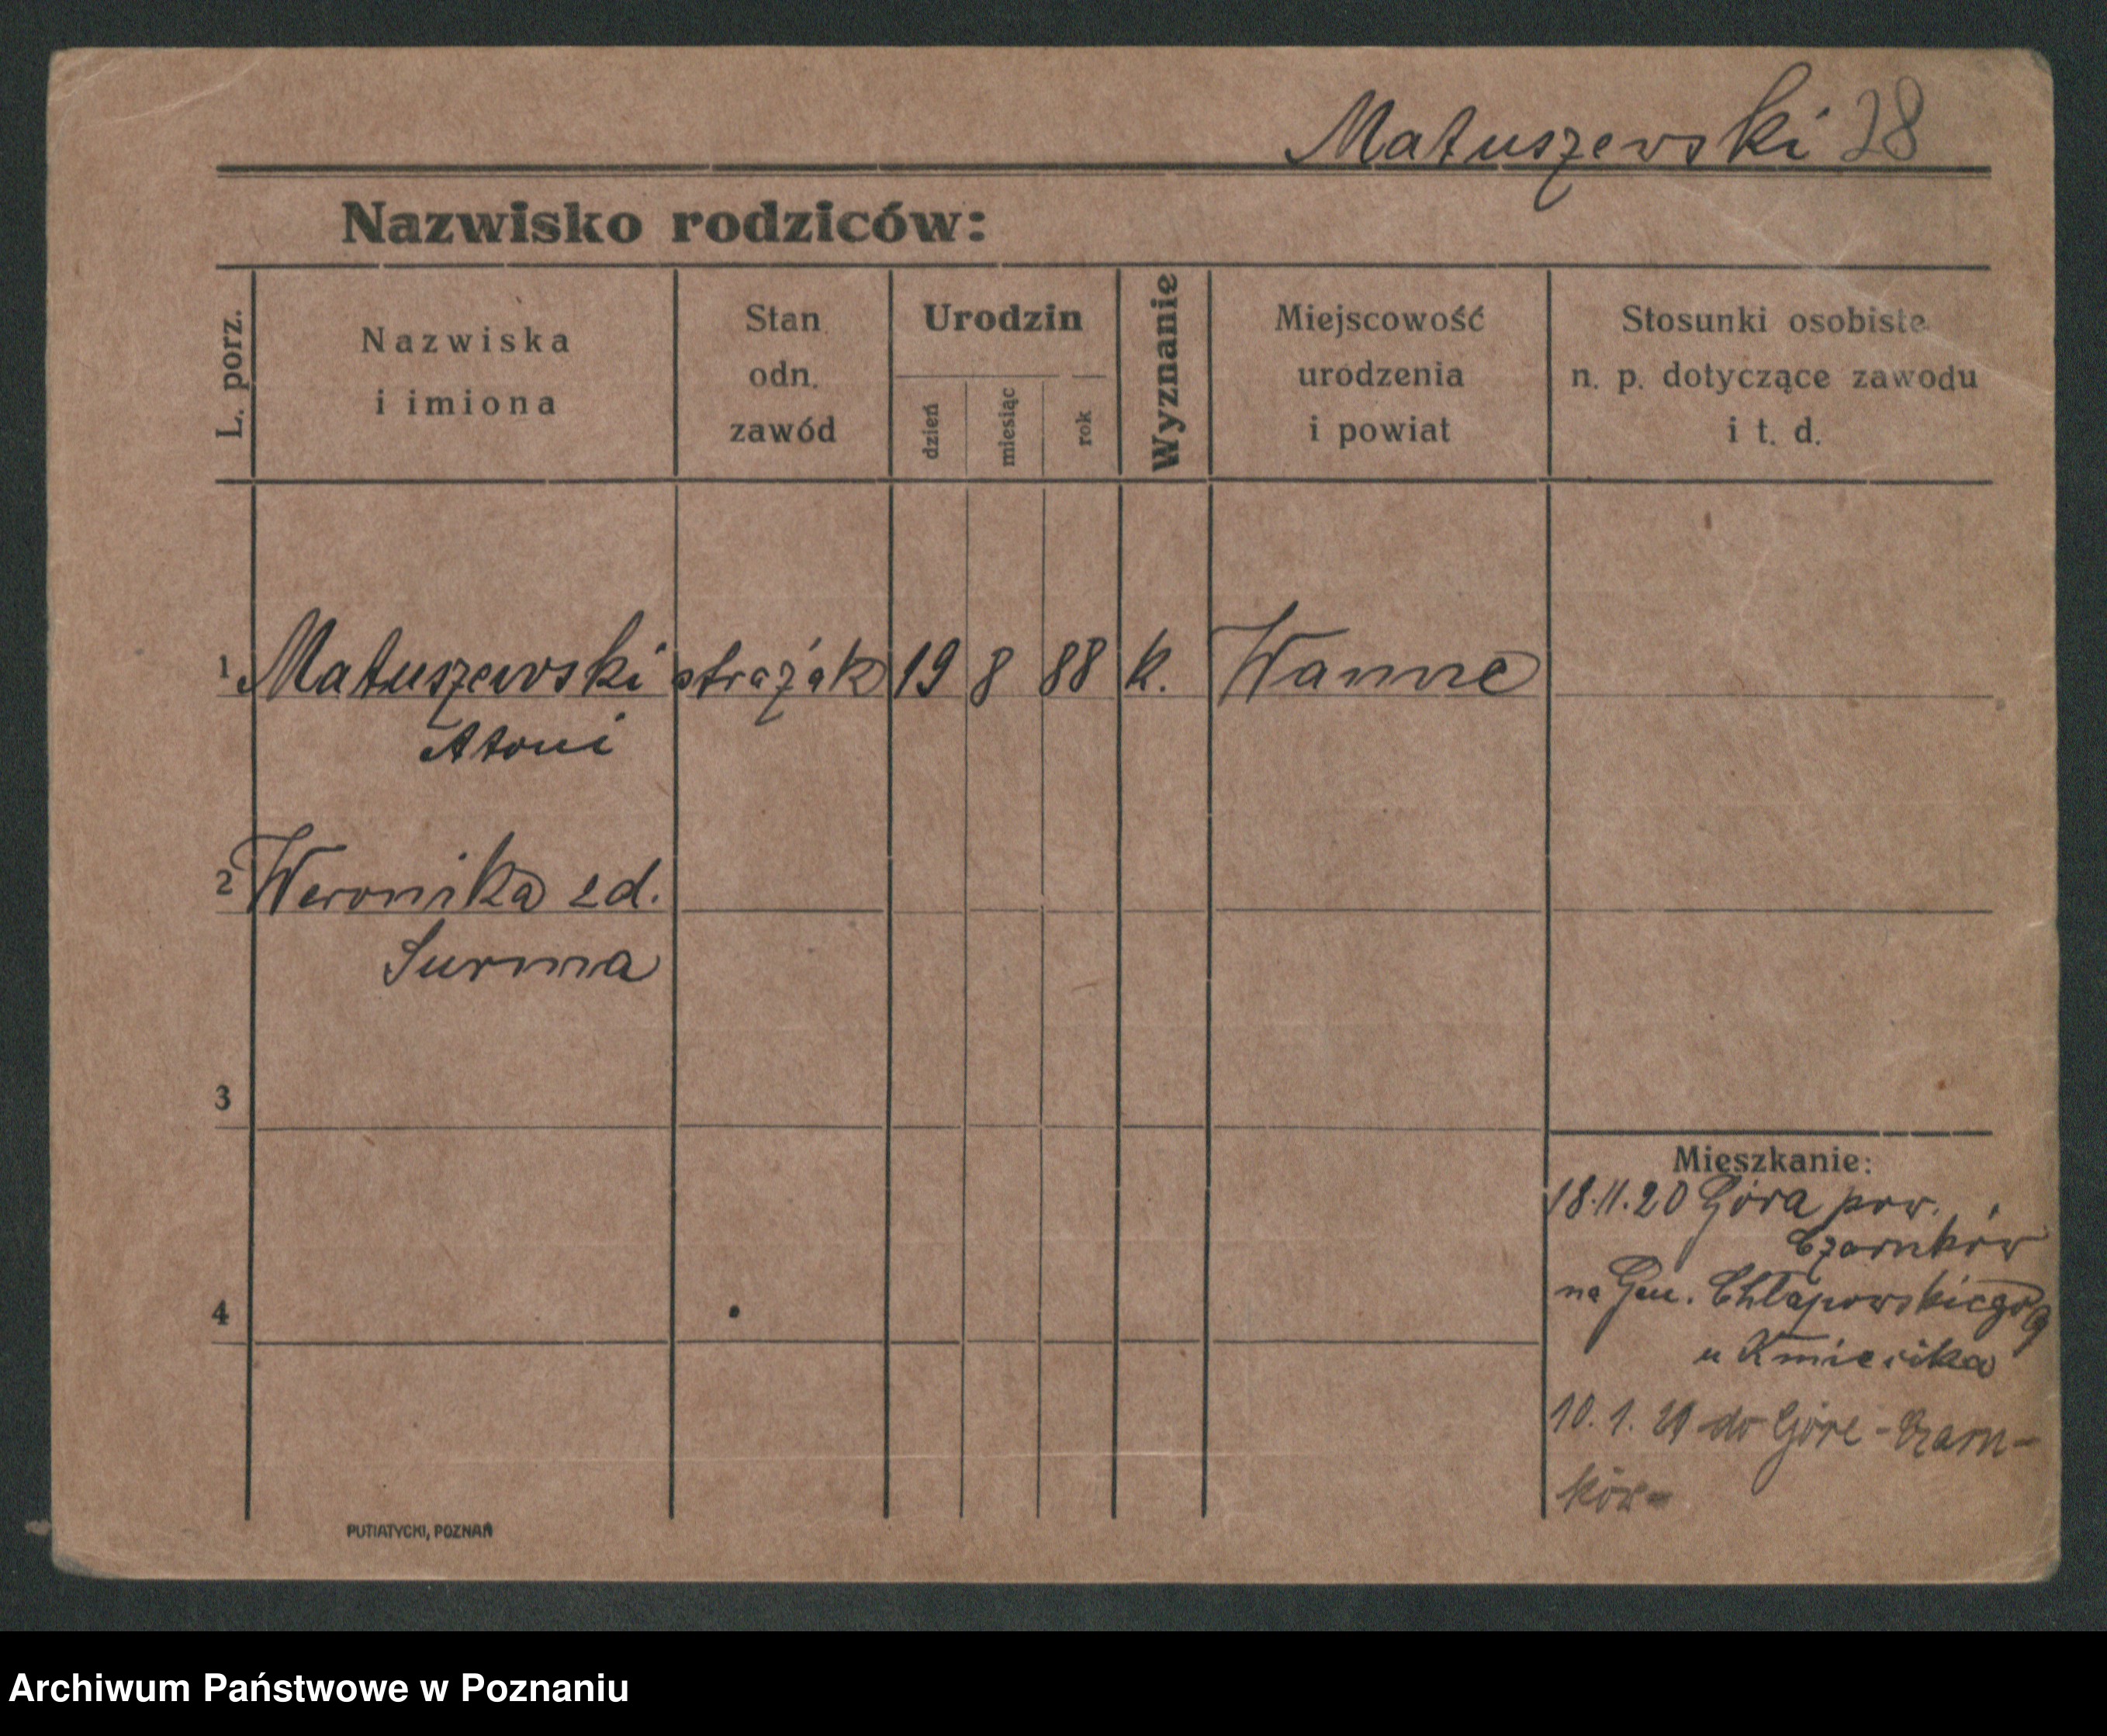 Matuszewski 28
Nazwisko rodziców:
L. porz.
Nazwiska
i imiona
Stan
odn.
zawód
Urodzin
dzień
miesiąc
rok
Wyznanie
Miejscowość
urodzenia
i powiat
Stosunki osobiste
n. p. dotyczące zawodu
i t. d.
1 Matuszewski strażak 19 8 88 k. Wanne
Atoni
2 Weronika zd.
Surma
3
4
Mieszkanie:
18.11.20 Góra pow.
Czarnków
na Gen. Chłapowskiego 9
u Kmiecika
10. 1. 21 do Góre - Czarn-
ków-
PUTIATYCKI, POZNAŃ
Archiwum Państwowe w Poznaniu